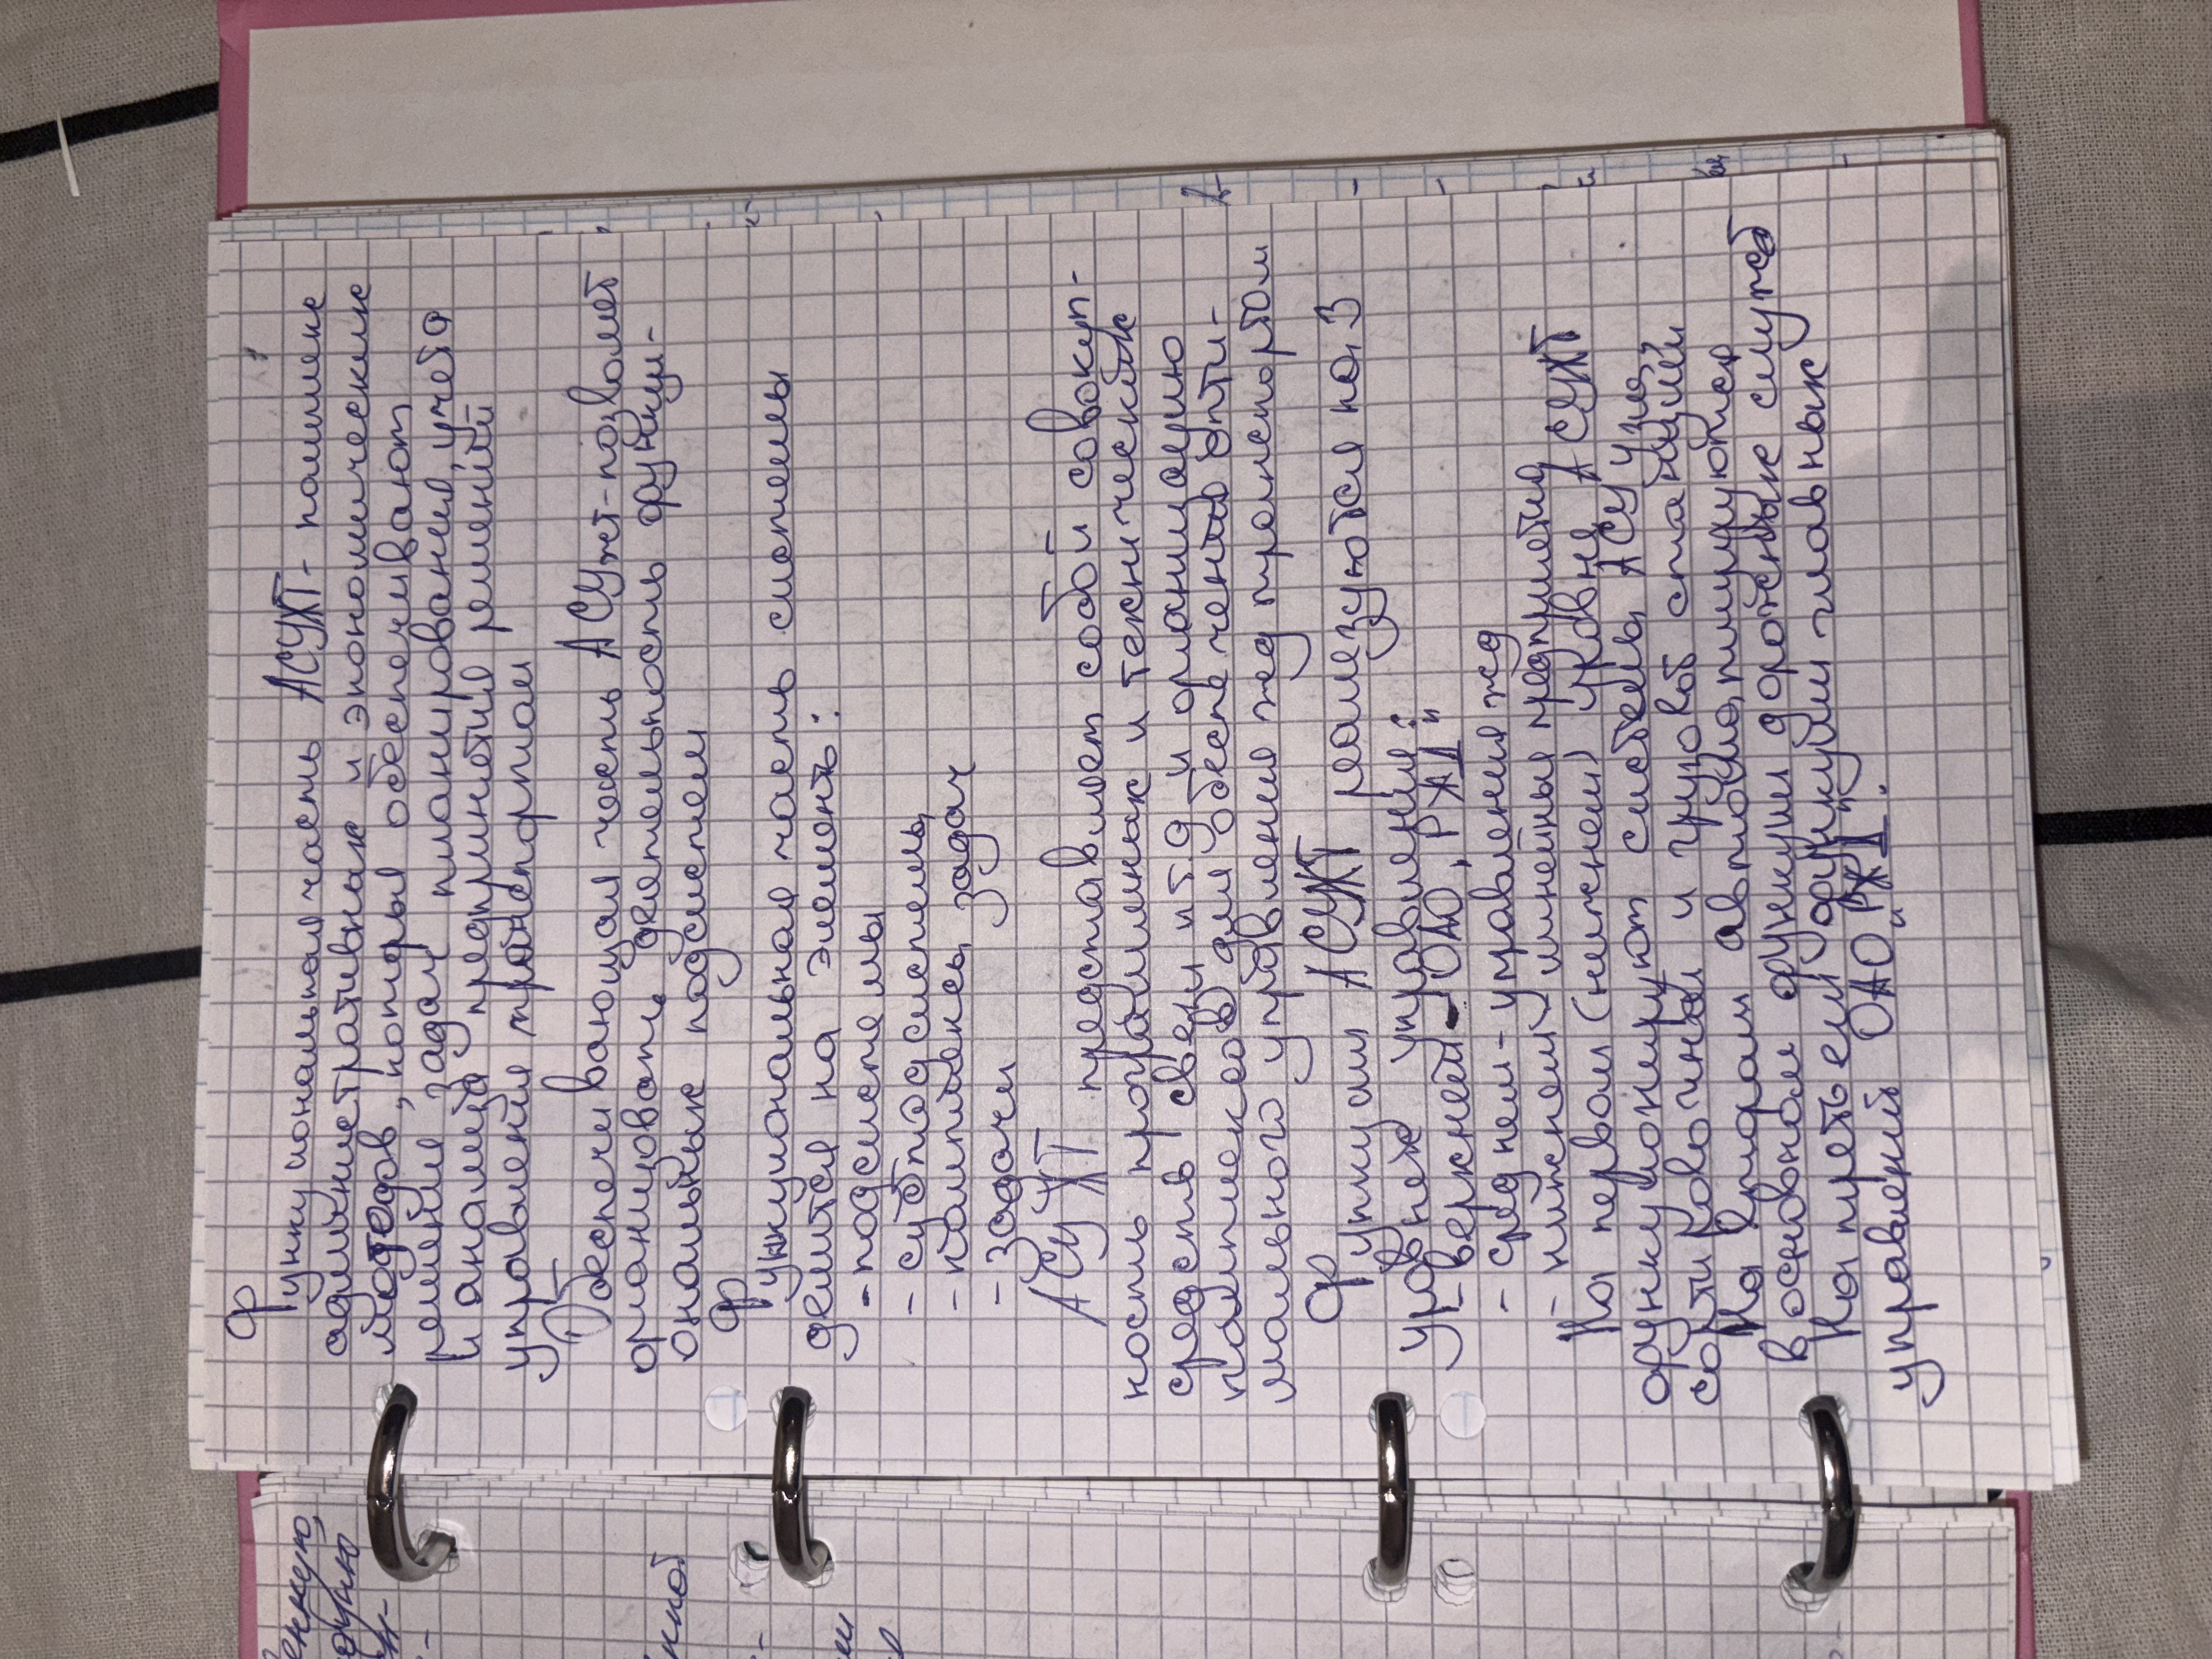 Функциональная часть АСУЖТ - комплекс
административных и экономических
методов, которые обеспечивают
решение задач планирования, учета
и анализа предпринятия решений
управления транспортом
Обеспечивающая часть АСУжт - позволяет
организовать деятельность функци-
ональных подсистем
Функциональная часть системы
делится на элементы:
- подсистемы
- субподсистемы
- комплексы задач
- задачи
АСУЖТ представляет собой совокуп-
ность программных и технических
средств связи и т.д и организацию
комплексов для обеспечения опти-
мального управления жд транспортом
Функции АСУЖТ реализуются на 3
уровнях управления:
- верхней - ОАО "РЖД"
- средней - управления жд
- нижней - линейных предприятия
На первом (нижнем) уровне АСУЖТ
функционируют системы АСУ узла,
сортировочной и грузовой станций
На втором автоматизируются
в основном функции дорожных служб
На третьем функции главных
управлений ОАО "РЖД".
венную,
нной